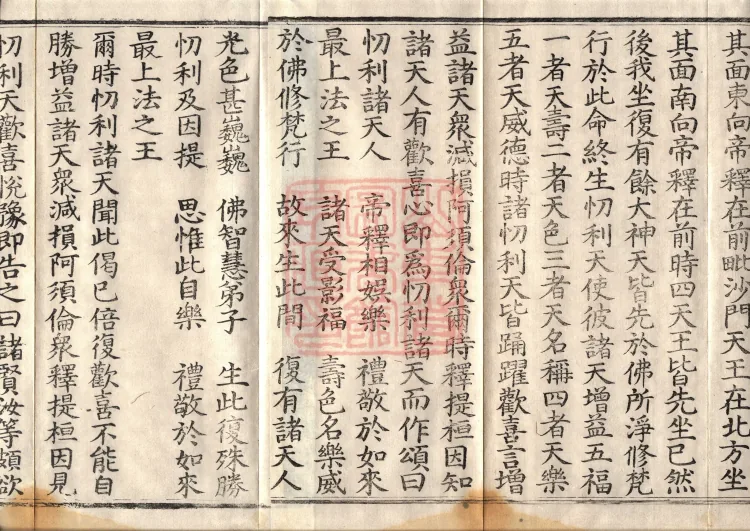 其面東向帝釋在前毗沙門天王在北方坐
其面南向帝釋在前時四天王皆先坐已然
後我坐復有餘大神天皆先於佛所淨修梵
行於此命終生忉利天使彼諸天增益五福
一者天壽二者天色三者天名稱四者天樂
五者天威德時諸忉利天皆踊躍歡喜言增
益諸天眾減損阿須倫眾爾時釋提桓因知
諸天人有歡喜心即為忉利諸天而作頌曰
忉利諸天人 帝釋相娛樂 禮敬於如來
最上法之王 諸天受影福 壽色名樂威
於佛修梵行 故來生此間 復有諸天人
光色甚巍巍 佛智慧弟子 生此復殊勝
忉利及因提 思惟此自樂 禮敬於如來
最上法之王
爾時忉利諸天聞此偈已倍復歡喜不能自
勝增益諸天眾減損阿須倫眾釋提桓因見
忉利天歡喜悅豫即告之曰諸賢汝等頗欲